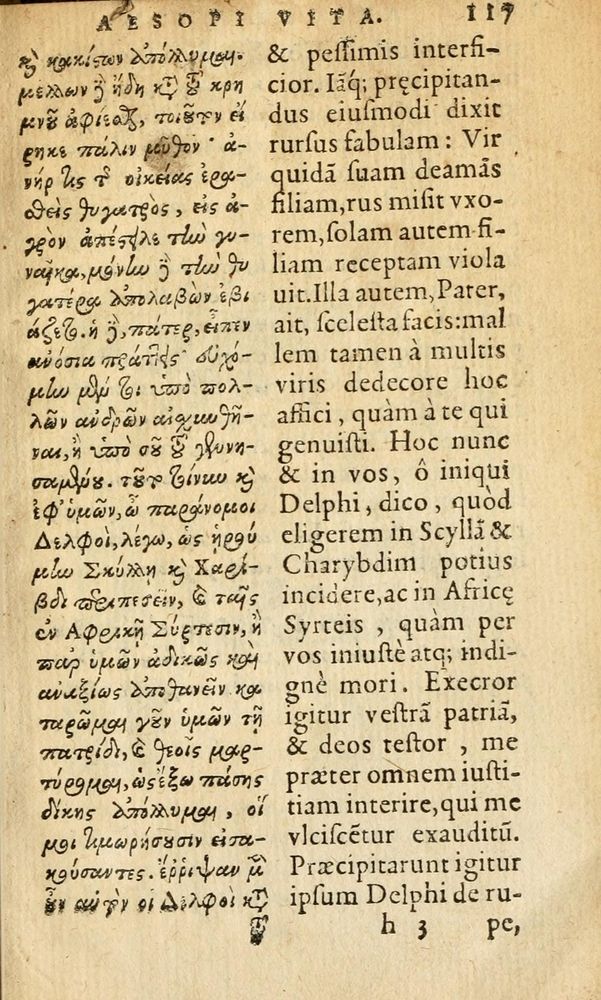 AESOPI VITA. 117
καὶ κακίστων ἀπόλλυμαι.
μέλλων δὲ ἤδη κατὰ τοῦ κρη
μνοῦ ἀφίεσθαι, τοιοῦτον εἴ
ρηκε πάλιν μῦθον· ἀ-
νήρ τις τῆς οἰκείας ἐρα-
σθεὶς θυγατρὸς, εἰς ἀ-
γρὸν ἀπέστειλε τὴν γυ-
ναῖκα, μόνην δὲ τὴν θυ
γατέρα ἀπολαβὼν ἐβι
άζετο. ἡ δὲ, πάτερ, εἶπεν
ἀνόσια πράττεις· εὐχό-
μην μὲν τοι ὑπὸ πολ-
λῶν ἀνδρῶν αἰσχυνθῆ-
ναι, ἢ ὑπὸ σοῦ τοῦ γεννη-
σαμένου. τοῦτο τοίνυν καὶ
ἐφ' ὑμῶν, ὦ παράνομοι
Δελφοὶ, λέγω, ὡς ᾑρού
μην Σκύλλῃ καὶ Χαρύ-
βδι περιπεσεῖν, καὶ ταῖς
ἐν Ἀφρικῇ Σύρτεσιν, ἢ
παρ' ὑμῶν ἀδίκως καὶ
ἀναξίως ἀποθανεῖν κα
ταρῶμαι γοῦν ὑμῶν τῇ
πατρίδι, καὶ θεοῖς μαρ-
τύρομαι, ὡς ἔξω πάσης
δίκης ἀπόλλυμαι, οἵ
μοι τιμωρήσουσιν εἰσα-
κούσαντες. ἔῤῥιψαν μὲν
οὖν αὐτὸν οἱ Δελφοὶ κατὰ
τοῦ
& pessimis interfi-
cior. Iāq; pręcipitan-
dus eiusmodi dixit
rursus fabulam: Vir
quidā suam deamās
filiam, rus misit vxo-
rem, solam autem fi-
liam receptam viola
uit. Illa autem, Pater,
ait, scelesta facis: mal
lem tamen à multis
viris dedecore hoc
affici, quàm à te qui
genuisti. Hoc nunc
& in vos, ô iniqui
Delphi, dico, quòd
eligerem in Scyllā &
Charybdim potius
incidere, ac in Africę
Syrteis, quàm per
vos iniustè atq; indi-
gnè mori. Execror
igitur vestrā patriā,
& deos testor, me
præter omnem iusti-
tiam interire, qui me
vlciscētur exauditū.
Præcipitarunt igitur
ipsum Delphi de ru-
h 3 pe,